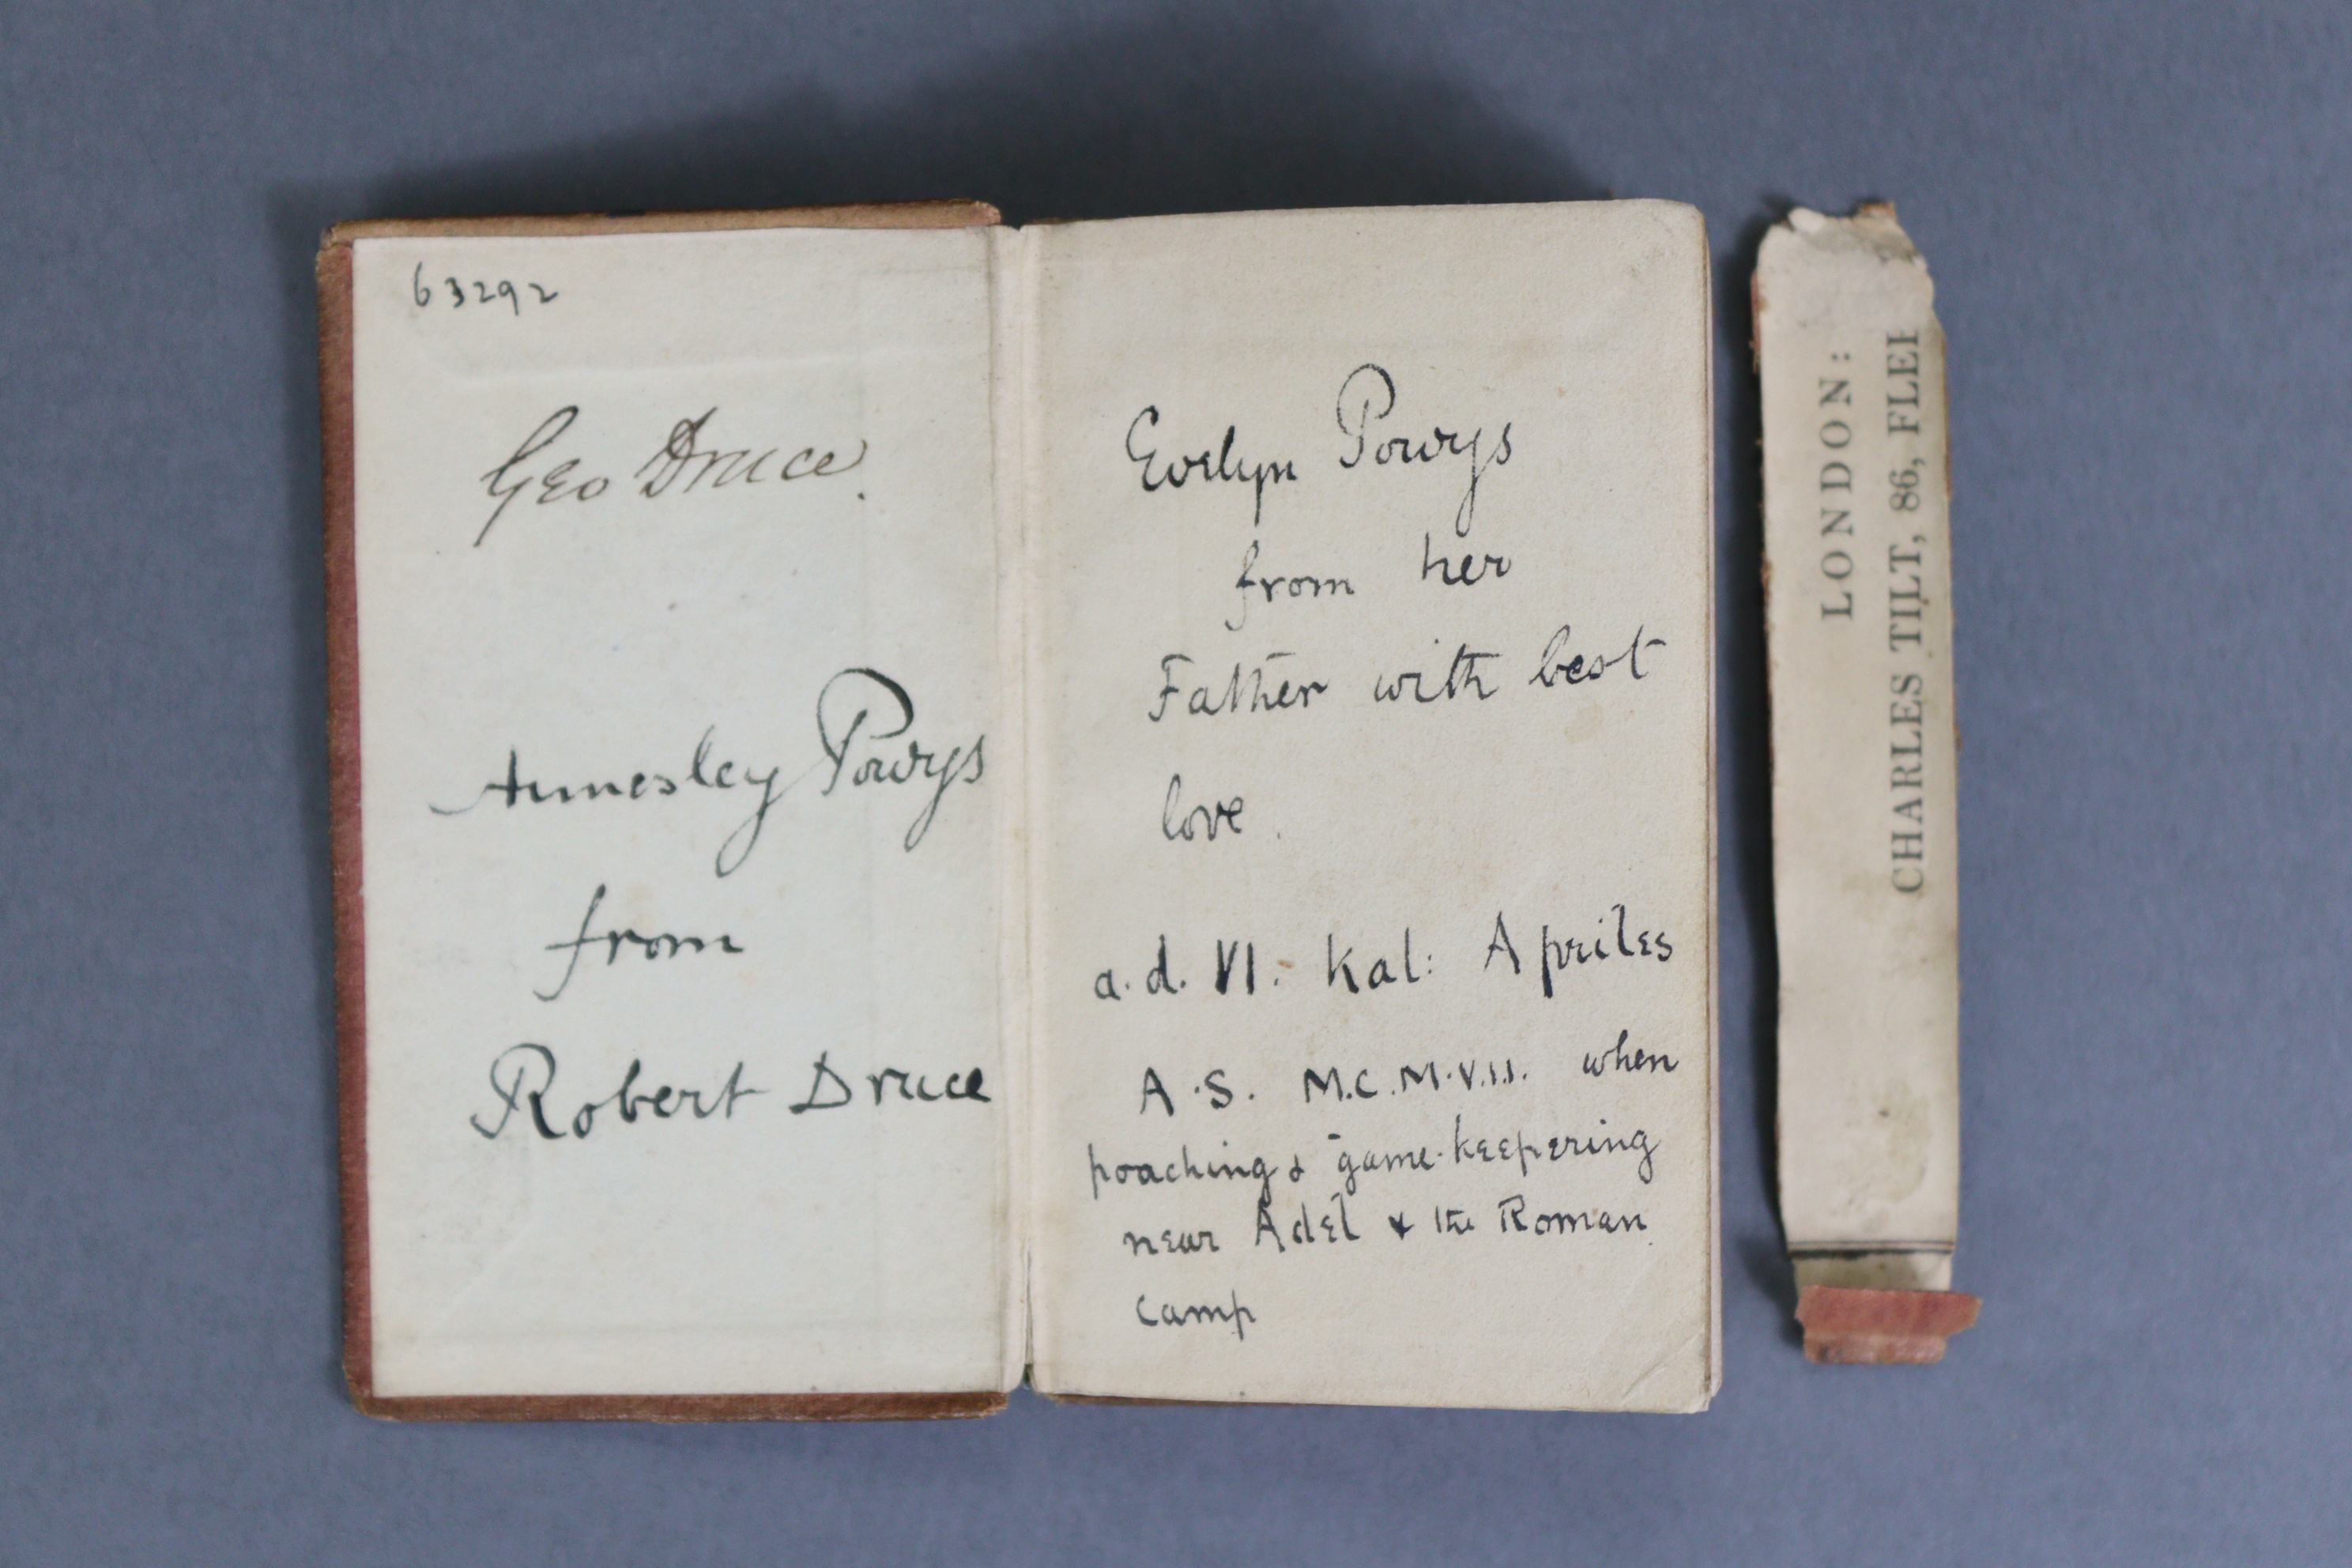 63292
Geo Druce.
Annesley Powys
from
Robert Druce
Evelyn Powys
from her
Father with best
love.
a.d. VI. Kal: Apriles
A.S. M.C.M.V.I.I. when
poaching & game-keepering
near Adel & the Roman
camp
LONDON:
CHARLES TILT, 86, FLEE